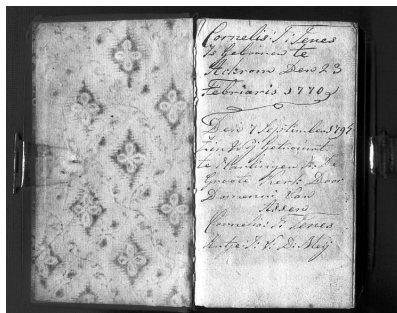 Cornelis T: Tenes
Is Gebooren te
Ackrom Den 23
Febriaris 1770
Den 7 September 1794
Zijn Wij Getrouwt
te Harlingen in De
Groote Kerk Door
Domenei Van
Assen
Cornelis T: Tenes
Antje T: V: D: Meij